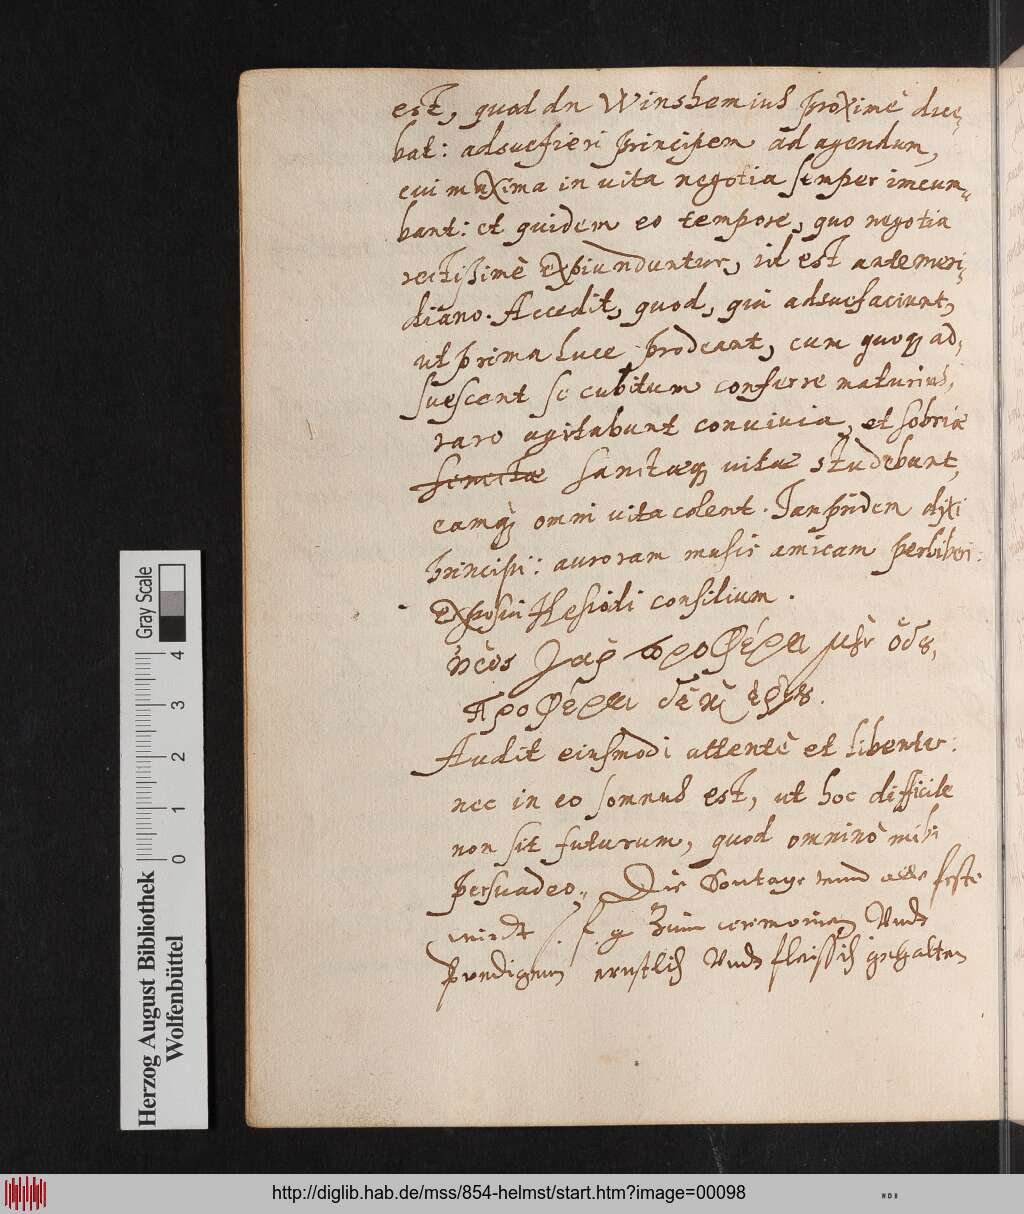 est, quod dn Winshemius proximè dice-
bat: adsuefieri principem ad agendum,
cui maxima in vita negotia semper incum-
bant: et quidem eo tempore, quo negotia
rectißimè expiunduntur, id est antemeri-
diano. Accedit, quod, qui adsuefaciunt,
ut prima luce prodeant, cum quoq ad,
suescent se cubitum conferre maturius,
raro agitabunt conuiuia, et sobriæ
senectæ sanctæq vitæ studebunt,
eamq omni vita colent. Jampridem
principi: auroram musis amicam
Exposui Hesiodi consilium.
γὰρ προφέρει μὲν ὁδȣ,
προφέρει δὲ ἔργȣ.
Audit eiusmodi attentè et libenter:
nec in eo somnus est, ut hoc difficile
non sit futurum, quod omninò mihi
persuadeo. Die Sontage vnd alle feste
wirdt s. f. g zum ceremonien vnds
predigenn ernstlich vnds fleissich gehalten
Gray Scale
4
3
2
1
0
Herzog August Bibliothek
Wolfenbüttel
http://diglib.hab.de/mss/854-helmst/start.htm?image=00098